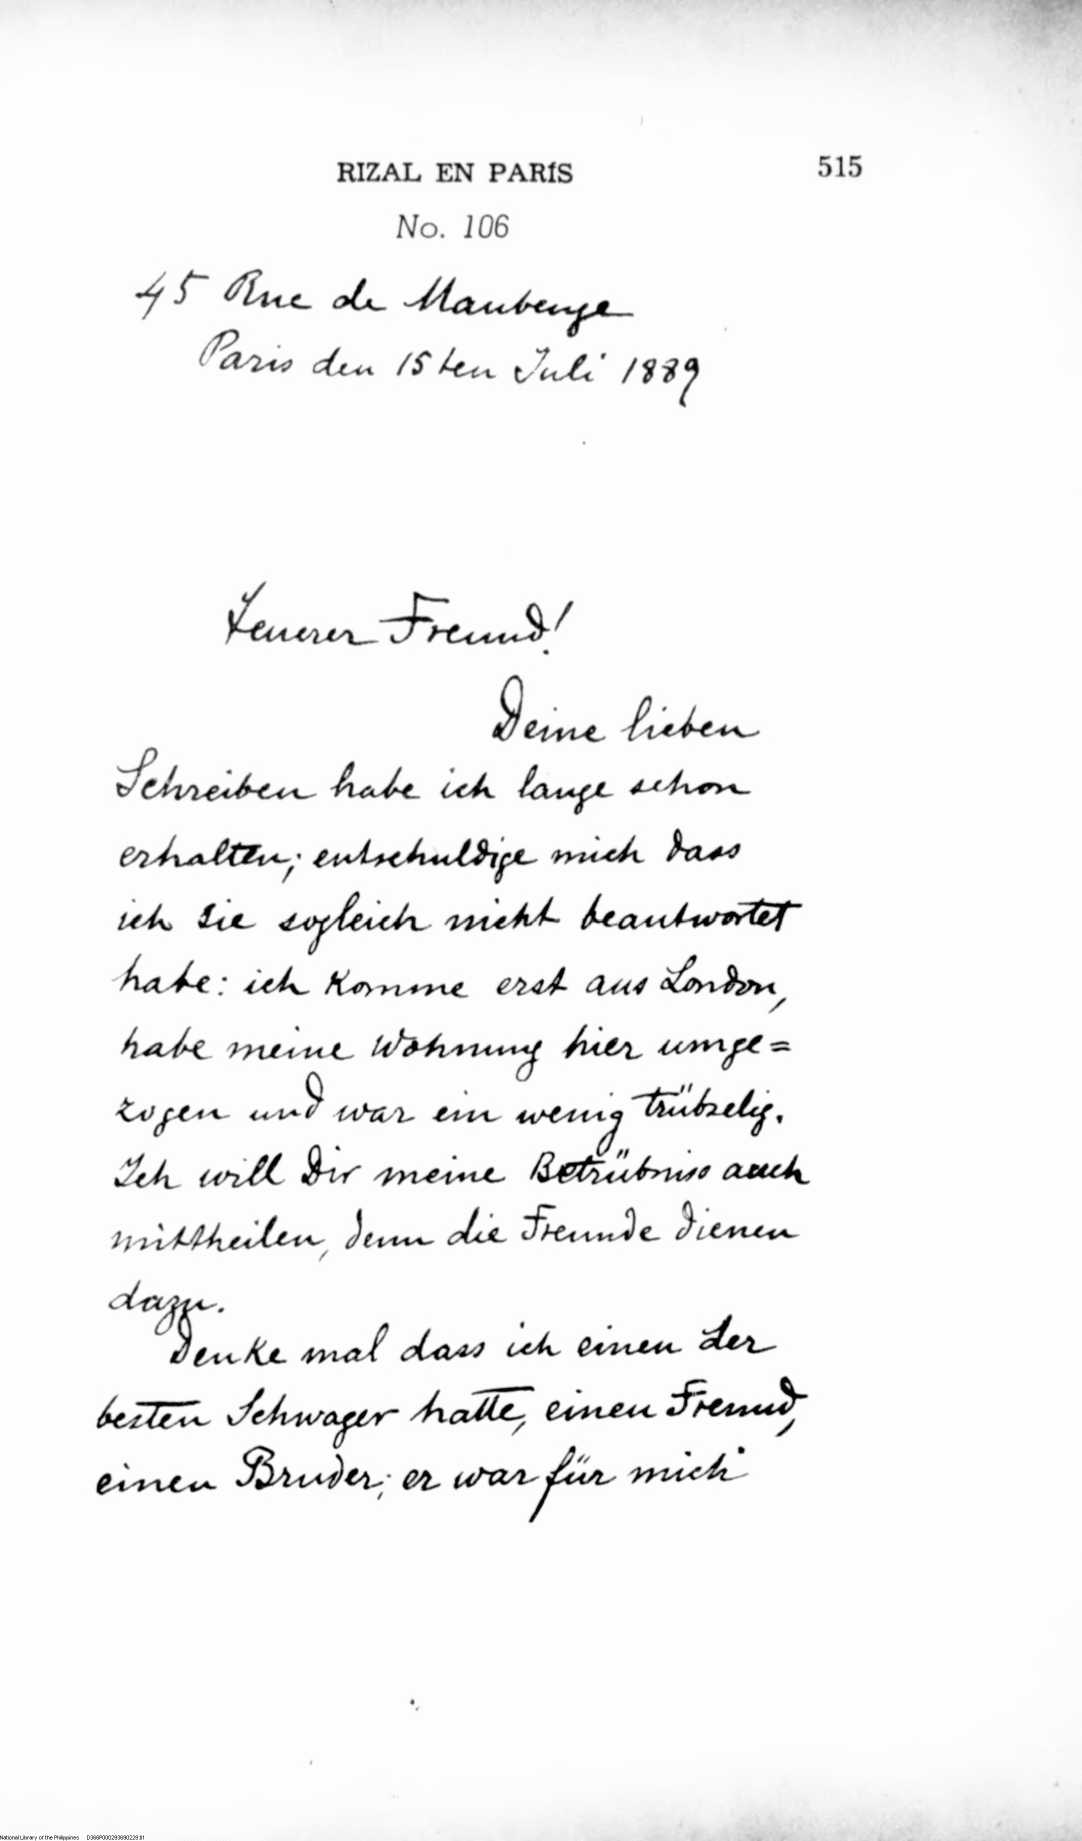 RIZAL EN PARÍS 515
No. 106
45 Rue de Maubeuge
Paris den 15ten Juli 1889
Teuerer Freund!
Deine lieben
Schreiben habe ich lange schon
erhalten; entschuldige mich dass
ich sie sogleich nicht beantwortet
habe: ich komme erst aus London,
habe meine Wohnung hier umge=
zogen und war ein wenig trübselig.
Ich will Dir meine Betrübniss auch
mittheilen, denn die Freunde dienen
dazu.
Denke mal dass ich einen der
besten Schwager hatte, einen Freund,
einen Bruder; er war für mich
National Library of the Philippines